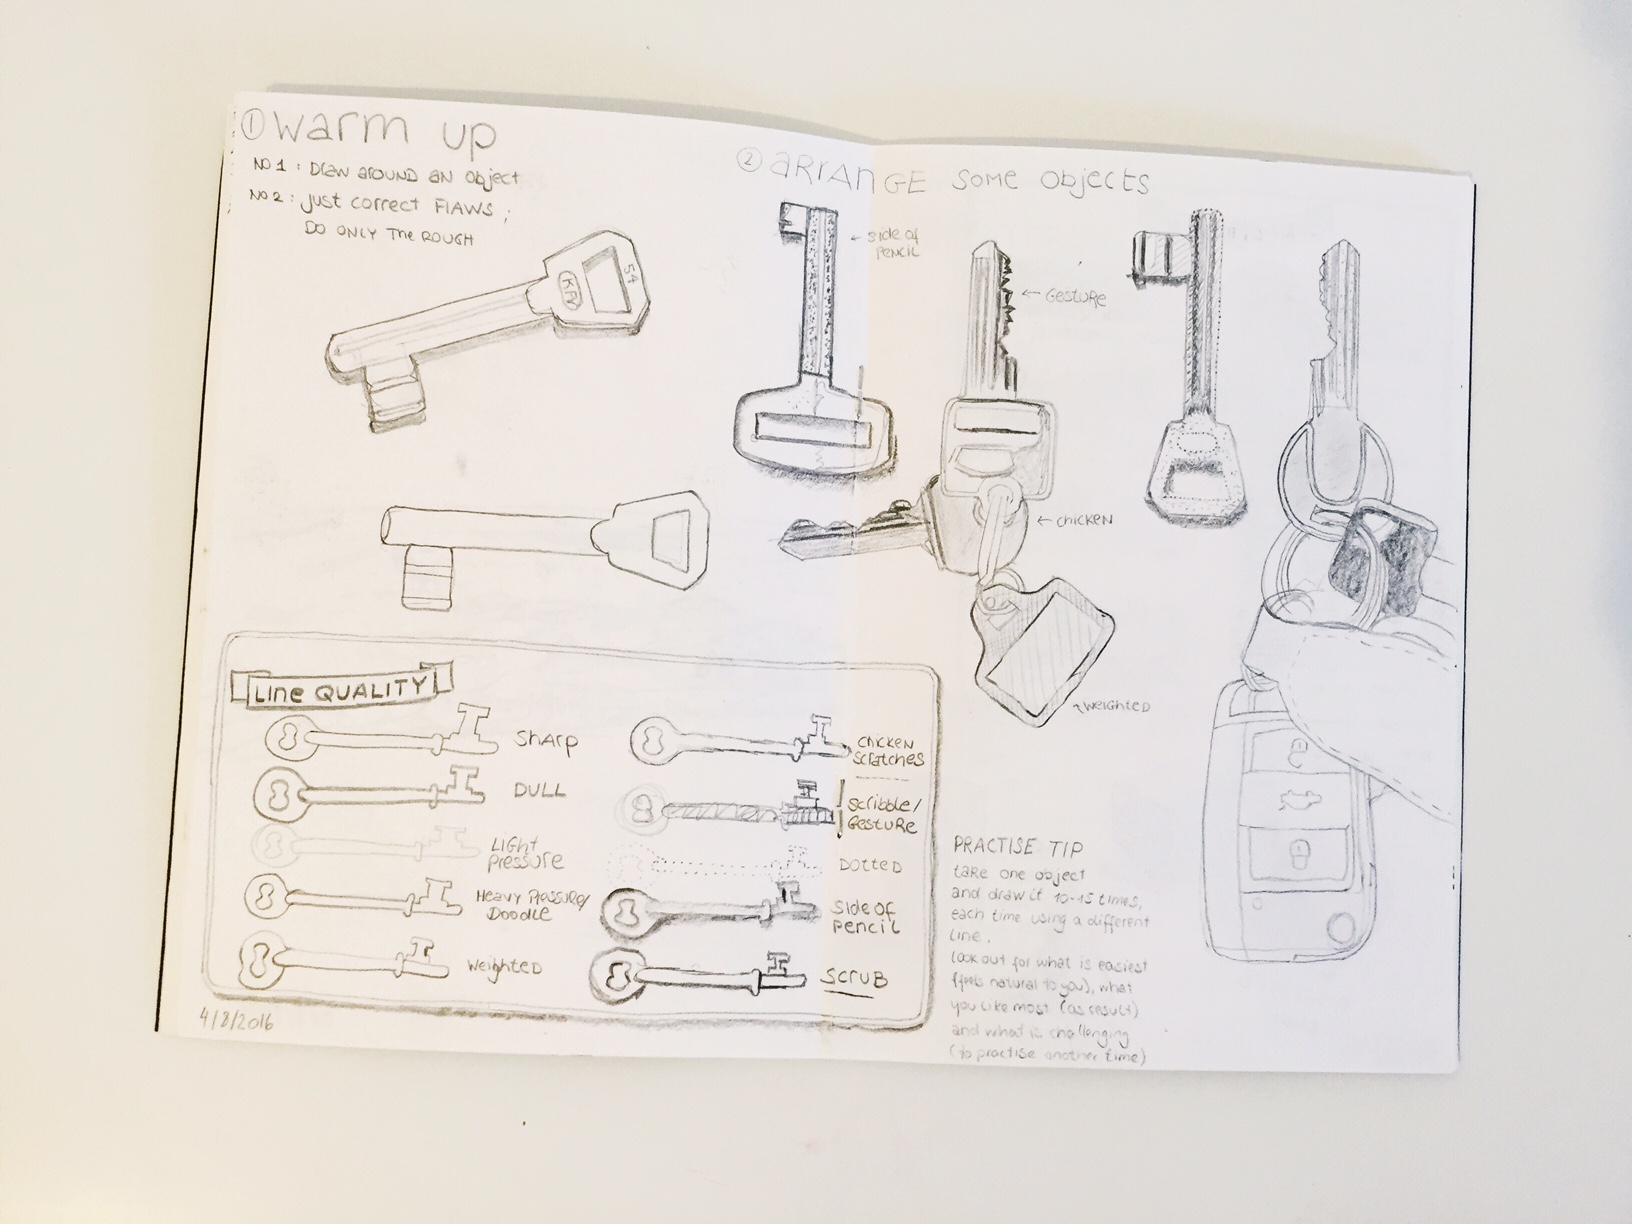 ① warm up
No 1: Draw around an object
No 2: just correct flaws;
Do only the rough
KEY
54
② ARRANGE some objects
← side of
pencil
← Gesture
← chicken
weighted
Line QUALITY
sharp
DULL
Light
pressure
Heavy Pressure/
Doodle
weighted
chicken
scratches
scribble/
Gesture
Dotted
side of
pencil
scrub
4/8/2016
PRACTISE TIP
take one object
and draw it 10-15 times,
each time using a different
line.
look out for what is easiest
(feels natural to you), what
you like most (as result)
and what is challenging
(to practise another time)